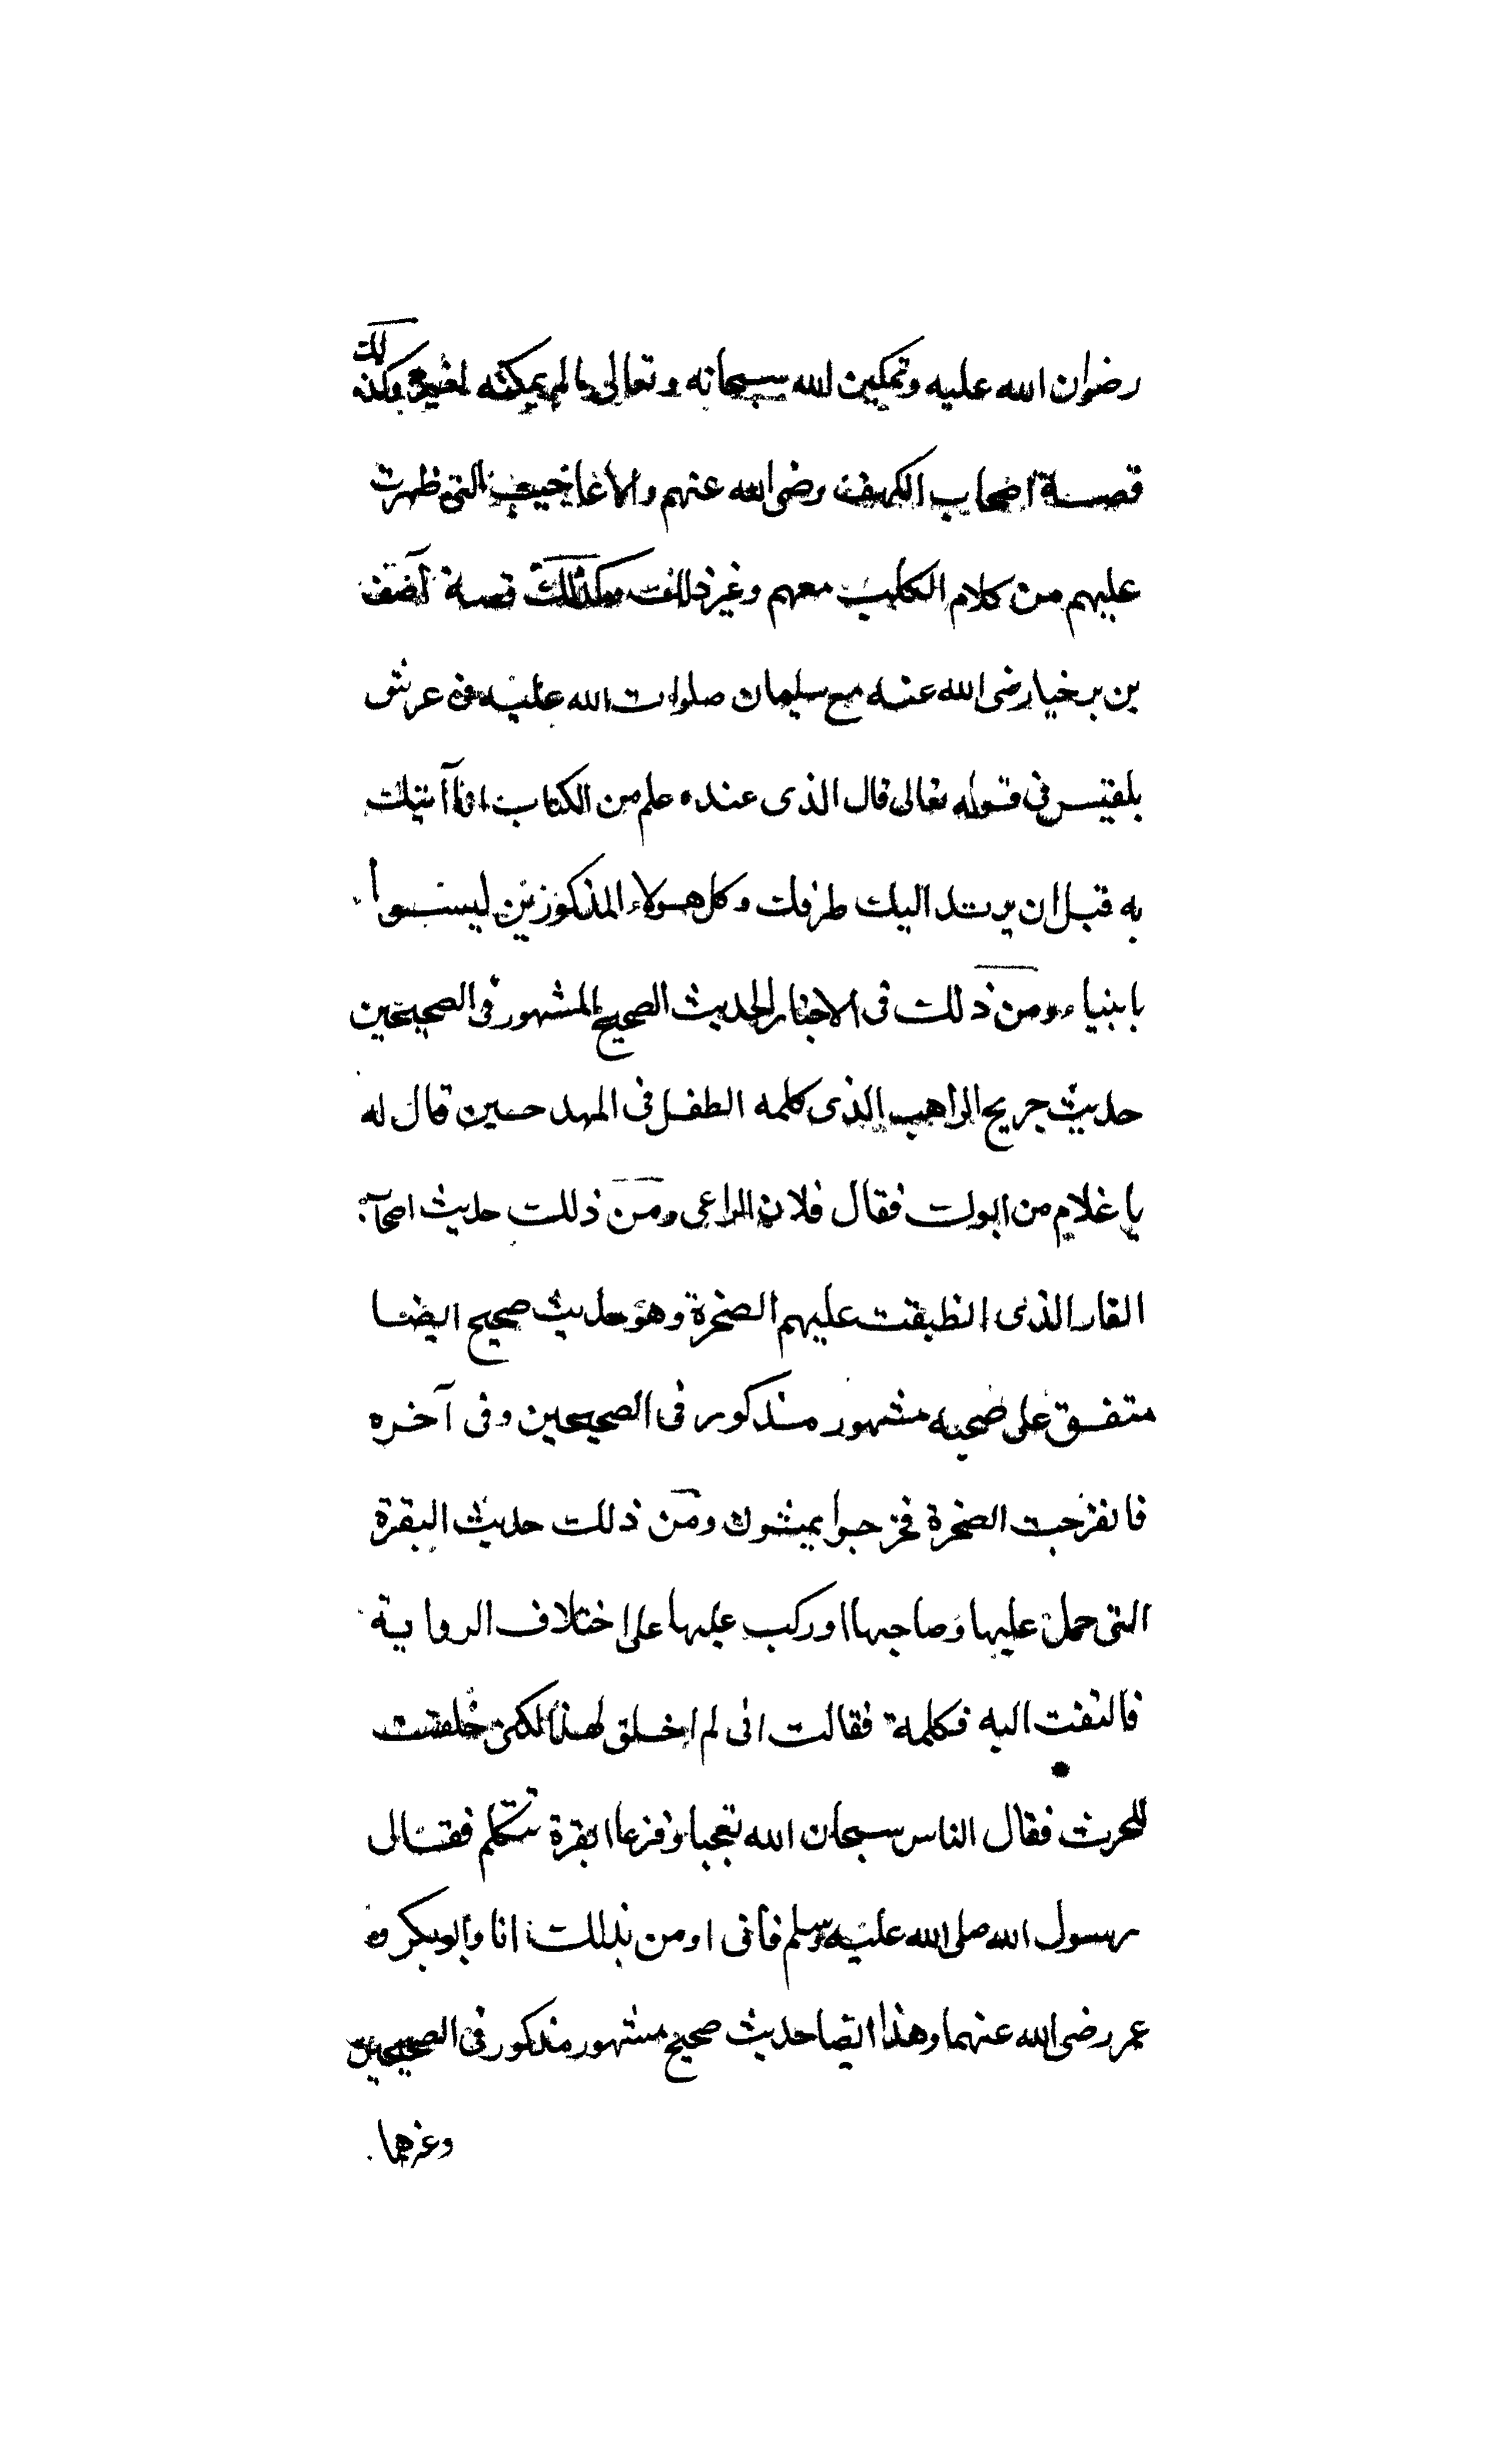 رضوان الله عليه وتمكين الله سبحانه وتعالى ما لم يمكنه لغيره وكذلك
قصة اصحاب الكهف رضى الله عنهم والاعاجيب التى ظهرت
عليهم من كلام الكلب معهم وغير ذلك وكذلك قصة آصف
بن برخيا رضى الله عنه مع سليمان صلوات الله عليه فى عرش
بلقيس فى قوله تعالى قال الذى عنده علم من الكتاب انا آتيك
به قبل ان يرتد اليك طرفك وكل هولاء المذكورين ليسوا
بانبياء ومن ذلك فى الاخبار الحديث الصحيح المشهور فى الصحيحين
حديث جريج الراهب الذى كلمه الطفل فى المهد حين قال له
يا غلام من ابوك فقال فلان الراعى ومن ذلك حديث اصحاب
الغار الذى انطبقت عليهم الصخرة وهو حديث صحيح ايضا
متفق على صحته مشهور مذكور فى الصحيحين وفى آخره
فانفرجت الصخرة فخرجوا يمشون ومن ذلك حديث البقرة
التى حمل عليها صاحبها او ركب عليها على اختلاف الرواية
فالتفت اليه فكلمته فقالت انى لم اخلق لهذا لكنى خلقت
للحرث فقال الناس سبحان الله تعجبا وفزعا ابقرة تتكلم فقال
رسول الله صلى الله عليه وسلم فانى اومن بذلك انا وابو بكر و
عمر رضى الله عنهما وهذا ايضا حديث صحيح مشهور مذكور فى الصحيحين
وغيرهما